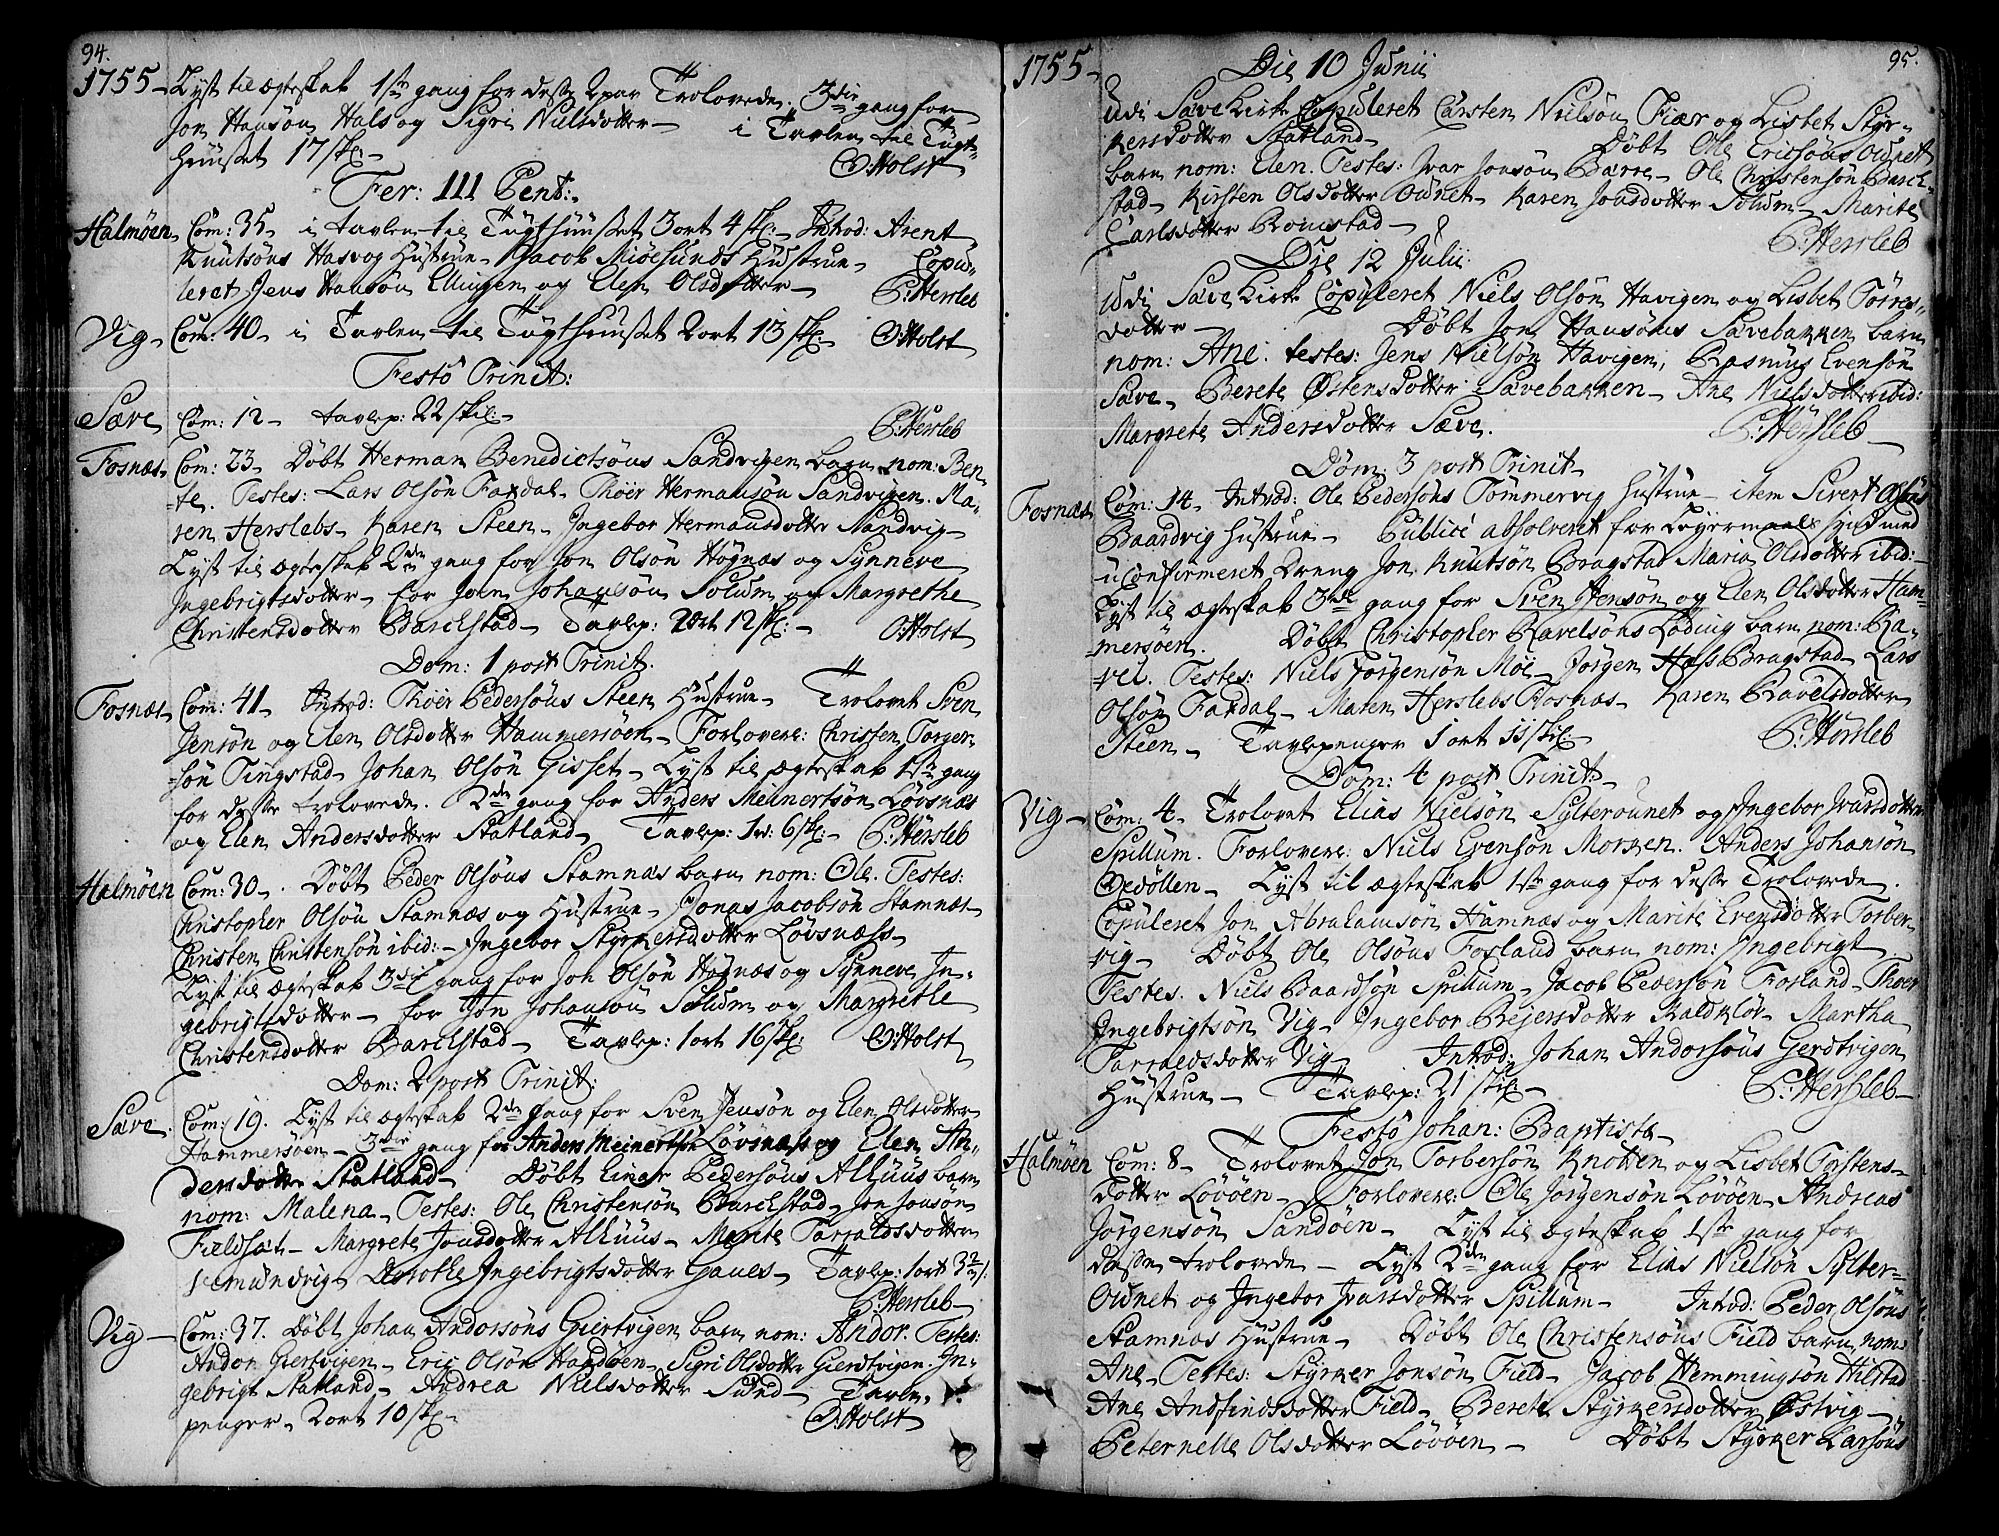 94.
1755 - Lyst til ægteskab 1ste gang for desse 2 par Trolovede. 3die gang for
Jon Hansøn Hals og Sigri Nielsdotter - i Tavlen til Tugt-
huuset 17 sk:-
O: Holst
Fer: III Pent:
Halmøen Com: 35 - i tavlen til Tugthuuset 3 ort 4 sk:- Introd: Arent
Knutsøns Hasvog Hustrue - Jacob Miøesunds Hustrue - Copu-
leret Jens Hansøn Ellingen og Elen Olsdotter - P: Hersleb
Vig - Com: 40 - i Tavlen til Tugthuuset 2 ort 13 sk:- O: Holst
Festo Trinit:
Sæve Com: 12 - tavlep: 22 skil:- P: Hersleb
Fosnæs - Com: 23 - Døbt Herman Benedictsøns Sandvigen barn nom: Ben-
te. Testes: Lars Olsøn Faxdal - Thoer Hermansøn Sandvigen. Ma-
ren Herslebs - Karen Steen - Ingebor Hermansdotter Sandvig -
Lyst til ægteskab 2den gang for Jon Olsøn Høgnæs og Synneve
Ingebrigtsdotter - for Jon Johansøn Solum og Margrethe
Christensdotter Barelstad - Tavlep: 2 ort 12 sk:- O: Holst
Dom: 1 post Trinit.
Fosnæs - Com: 41 - Introd: Thoer Pedersøns Steen Hustrue - Trolovet Sven
Jensøn og Elen Olsdotter Hammersøen - Forlovere: Christen Torger-
søn Tingstad - Johan Olsøn Gisset - Lyst til ægteskab 1ste gang
for desse trolovede. 2den gang for Anders Meinertsøn Løvsnæs
og Elen Andersdotter Statland - Tavlep: 1 ort: 6 sk:- P: Hersleb
Halmøen Com: 30 - . Døbt Peder Olsøns Stamnæs barn nom: Ole. Testes:
Christopher Olsøn Stamnæs og Hustrue - Jonas Jacobsøn Stamnæs -
Christen Christensøn ibid: - Ingebor Styrkersdotter Løvsnæss -
Lyst til ægteskab 3die gang for Jon Olsøn Høgnæs og Synneve In-
gebrigtsdotter - for Jon Johansøn Solum og Margrethe
Christensdotter Barelstad - Tavlep: 1 ort 16 sk: O: Holst
Dom: 2 post Trinit:
Sæve. Com: 19. Lyst til ægteskab 2den gang for Sven Jensøn og Elen Olsdotter
Hammersøen - 3die gang for Anders Meinertsøn Løvsnæs og Elen An-
dersdotter Statland - Døbt Einer Pedersøns Alhuus barn
nom: Malena - Testes: Ole Christensøn Barelstad - Jon Jonsøn
Fieldsæt - Margrete Jonsdotter Alhuus - Marite Tarraldsdotter
Remundvig - Dorothe Ingebrigtsdotter Gaues - Tavlep: 1 ort 3
P: Hersleb -
Vig - Com: 37. Døbt Johan Andorsøns Giertvigen barn nom: Andor. Testes:
Andor Giertvigen - Eric Olsøn Handøen - Sigri Olsdotter Gierdtvigen. In-
gebrigt Statland - Andrea Nielsdotter Sund - Tavle-
penger - 2 ort 10 sk:-
O: Holst
95.
1755 - Die 10 Junii
Udi Sæve Kirke Copuleret Carsten Nielsøn Fiær og Lisbet Styr-
kersdotter Statland - Døbt Ole Ericsøns Oudnet
barn nom: Elen. Testes: Ivar Jonsøn Barre - Ole Christensøn Barel-
stad - Kirsten Olsdotter Oudnet - Karen Jonsdotter Solum - Marite
Carlsdotter Romstad -
P: Hersleb
Die 12 Julii
Udi Sæve Kirke Copuleret Niels Olsøn Havigen og Lisbet Torres-
dotter - Døbt Jon Hansøns Sævebakken barn
nom: Ane. testes: Jens Nielsøn Havigen, Rasmus Evensøn
Sæve - Berete Østensdotter Sævebakken - Ane Nielsdotter ibid:
Margrete Andersdotter Sæve. P: Hersleb -
Dom: 3 post Trinit -
Fosnæs Com: 14. Introd: Ole Pedersøns Tømmervig Hustrue - item Sivert Olsøns
Baardvig Hustrue - Publice absolveret for Leyermaals synd med
uconfirmeret Dreng Jon Knutsøn Bragstad Maria Olsdotter ibid: -
Lyst til ægteskab 3die gang for Sven Jensøn og Elen Olsdotter Ham-
mersøen. Døbt Christopher Ravelsøns Løding barn nom: Ra-
vel. Testes: Niels Jørgensøn Moe - Jørgen Hass Bragstad - Lars
Olsøn Faxdal - Maren Herslebs Fosnæs - Karen Ravelsdotter
Steen - Tavlepenger 1 ort 11 skil:- P: Hersleb
Dom: 4 post Trinit:
Vig - Com: 4. Trolovet Elias Nielsøn Sylterounet og Ingebor Ivarsdotter
Spillum. Forlovere: Niels Evensøn Morken. Anders Johansøn
Devollen - Lyst til ægteskab 1ste gang for desse Trolovede.
Copuleret Jon Abrahamsøn Hamnæs og Marite Evensdotter Torber-
vig - Døbt Ole Olsøns Fosland barn nom: Ingebrigt
Testes. Niels Baardsøn Spillum - Jacob Pedersøn Fosland - Thoer
Ingebrigtsøn Vig - Ingebor Bejersdotter Kaldkløv - Martha
Tarraldsdotter Vig - Introd: Johan Andorsøns Gerdtvigen
Hustrue - Tavlep: 21 skil: - P: Hersleb -
Festo Johan: Baptistæ -
Halmøen Com: 8 - Trolovet Jon Torbersøn Knotten og Lisbet Torstens-
dotter Løvøen - Forlovere: Ole Jørgensøn Løvøen - Andreas
Jørgensøn Sandøen - Lyst til ægteskab 1ste gang for
desse trolovede - Lyst 2den gang for Elias Nielsøn Sylter-
Oudnet og Ingebor Ivarsdotter Spillum - Introd: Peder Olsøns
Stamnæs Hustrue - Døbt Ole Christensøns Field barn nom:
Ane - Testes: Styrker Jonsøn Field - Jacob Hemmingsøn Hilstad
Ane Andfindsdotter Field - Berete Styrkersdotter Østvig -
Peternelle Olsdotter Løvøen - Døbt Styrker Larsøns